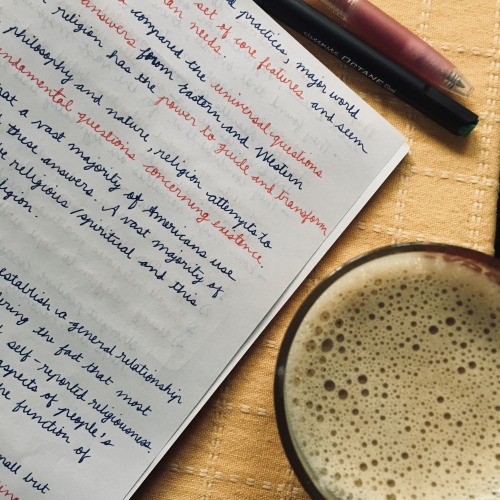 practices, major world
set of core features and seem
an needs.
compared the universal questions
answers from Eastern and Western
religion has the power to guide and transform
philosophy and nature, religion attempts to
undamental questions concerning existence.
at a vast majority of Americans use
these answers. A vast majority of
religious/spiritual and this
ligion.
establish a general relationship
ering the fact that most
self-reported religiousness.
aspects of people's
he function of
mall but
OCTANE